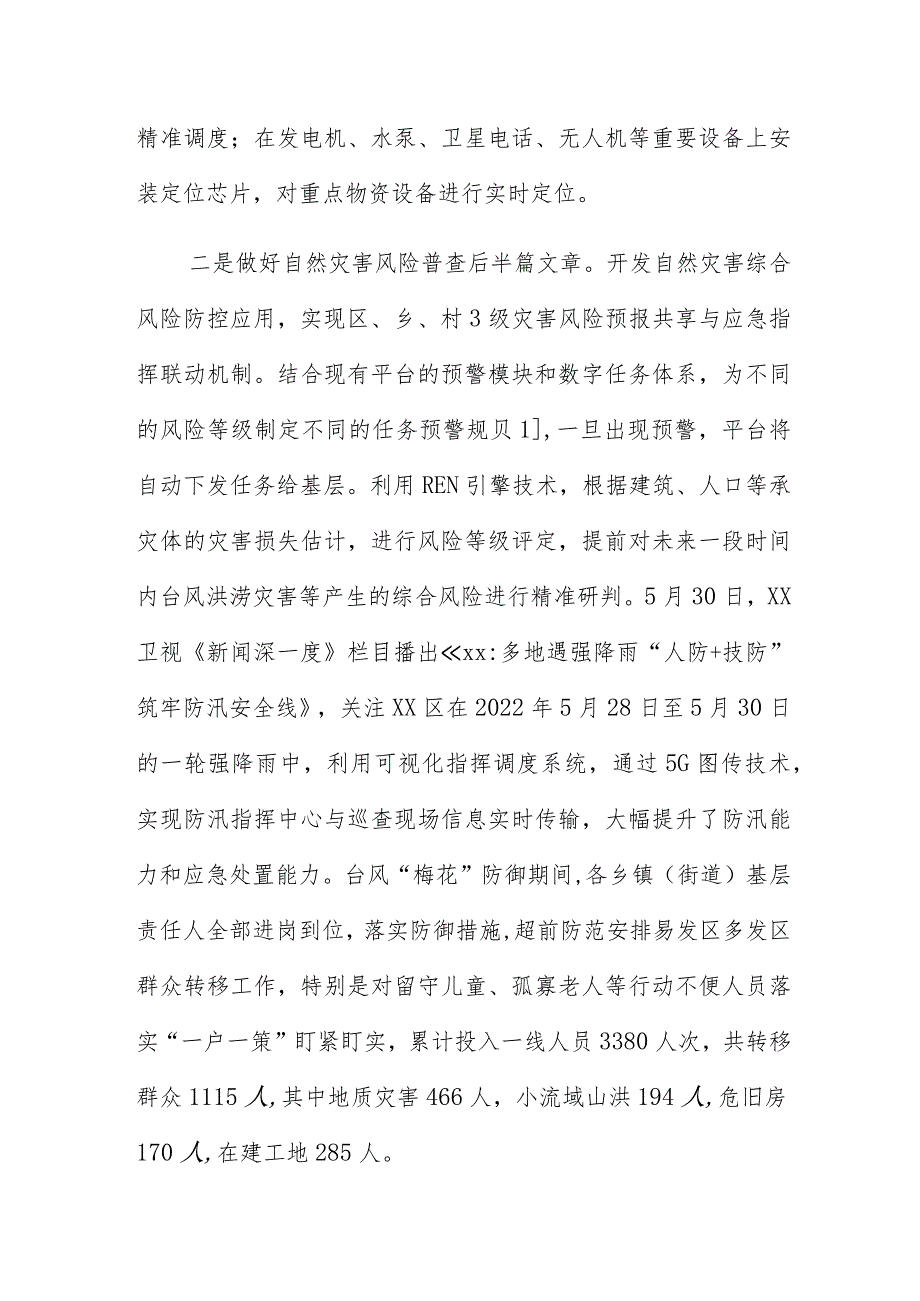 精准调度；在发电机、水泵、卫星电话、无人机等重要设备上安
装定位芯片，对重点物资设备进行实时定位。
二是做好自然灾害风险普查后半篇文章。开发自然灾害综合
风险防控应用，实现区、乡、村3级灾害风险预报共享与应急指
挥联动机制。结合现有平台的预警模块和数字任务体系，为不同
的风险等级制定不同的任务预警规贝1],一旦出现预警，平台将
自动下发任务给基层。利用REN引擎技术，根据建筑、人口等承
灾体的灾害损失估计，进行风险等级评定，提前对未来一段时间
内台风洪涝灾害等产生的综合风险进行精准研判。5月30日，XX
卫视《新闻深一度》栏目播出≪xx:多地遇强降雨“人防+技防”
筑牢防汛安全线》，关注XX区在2022年5月28日至5月30日
的一轮强降雨中，利用可视化指挥调度系统，通过5G图传技术，
实现防汛指挥中心与巡查现场信息实时传输，大幅提升了防汛能
力和应急处置能力。台风“梅花”防御期间,各乡镇（街道）基层
责任人全部进岗到位，落实防御措施,超前防范安排易发区多发区
群众转移工作，特别是对留守儿童、孤寡老人等行动不便人员落
实“一户一策”盯紧盯实，累计投入一线人员3380人次，共转移
群众1115人,其中地质灾害466人，小流域山洪194人,危旧房
170人,在建工地285人。